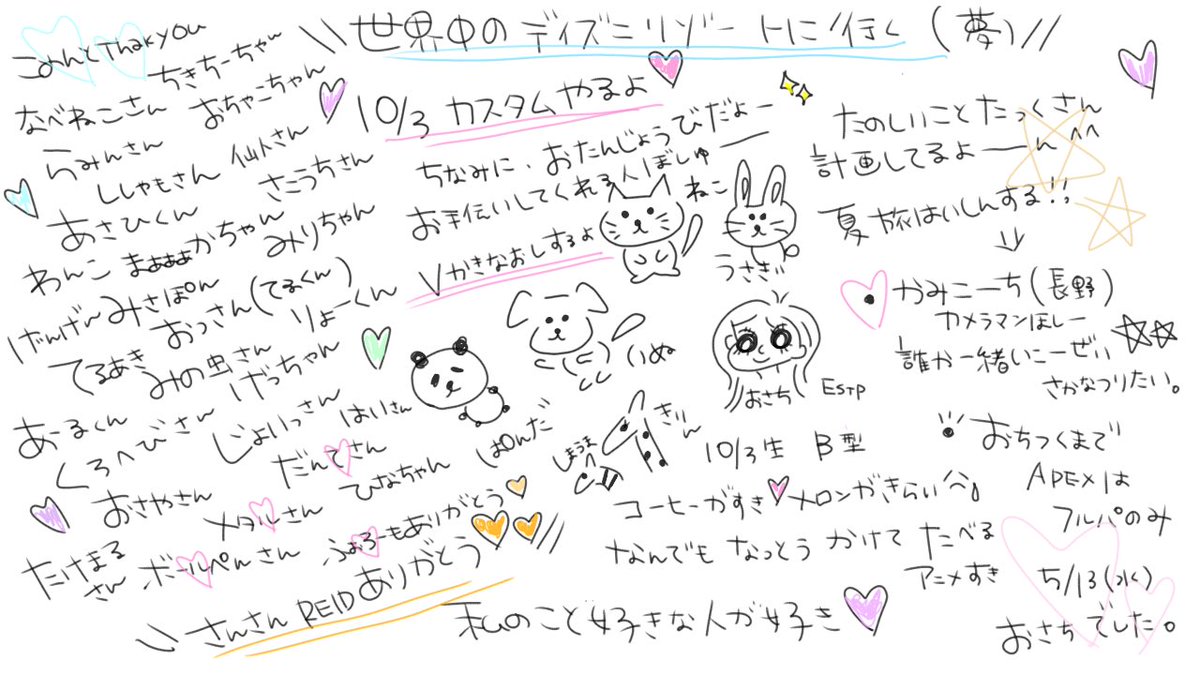 \\ 世界中のディズニリゾートに行く (夢) //
こめんとThakyou
ちきちーちゃん
なべねこさん おちゃこちゃん
らみんさん
ししゃもさん 仙人さん
さこうちさん
あさひくん
わんこ まぁぁぁかちゃん みりちゃん
げんげん みさぽん
おっさん(てるくん)
てるあき みの虫さん りょーくん
げっちゃん
あーるくん
くろへびさん じょいっさん
はいさん
だんてさん
おさやさん
ひなちゃん
メタルさん
たけまるさん ボールペンさん ふぉろーもありがとう
\\ さんさん REID ありがとう //
10/3 カスタムやるよ
ちなみに、おたんじょうびだよー
お手伝いしてくれる人ぼしゅー
∨かきなおしするよ
ねこ
うさぎ
いぬ
ぱんだ
しまうま
きりん
おさち ESTP
10/3生 B型
コーヒーがすき メロンがきらい
なんでも なっとう かけて たべる
アニメすき
私のこと好きな人が好き
たのしいことたっくさん
計画してるよーーん^^
夏 旅はいしんする!!
↓
・かみこーち(長野)
カメラマンほしー
誰か一緒いこーぜぃ
さかなつりたい。
・おちつくまで
APEXは
フルパのみ
5/13(水)
おさちでした。